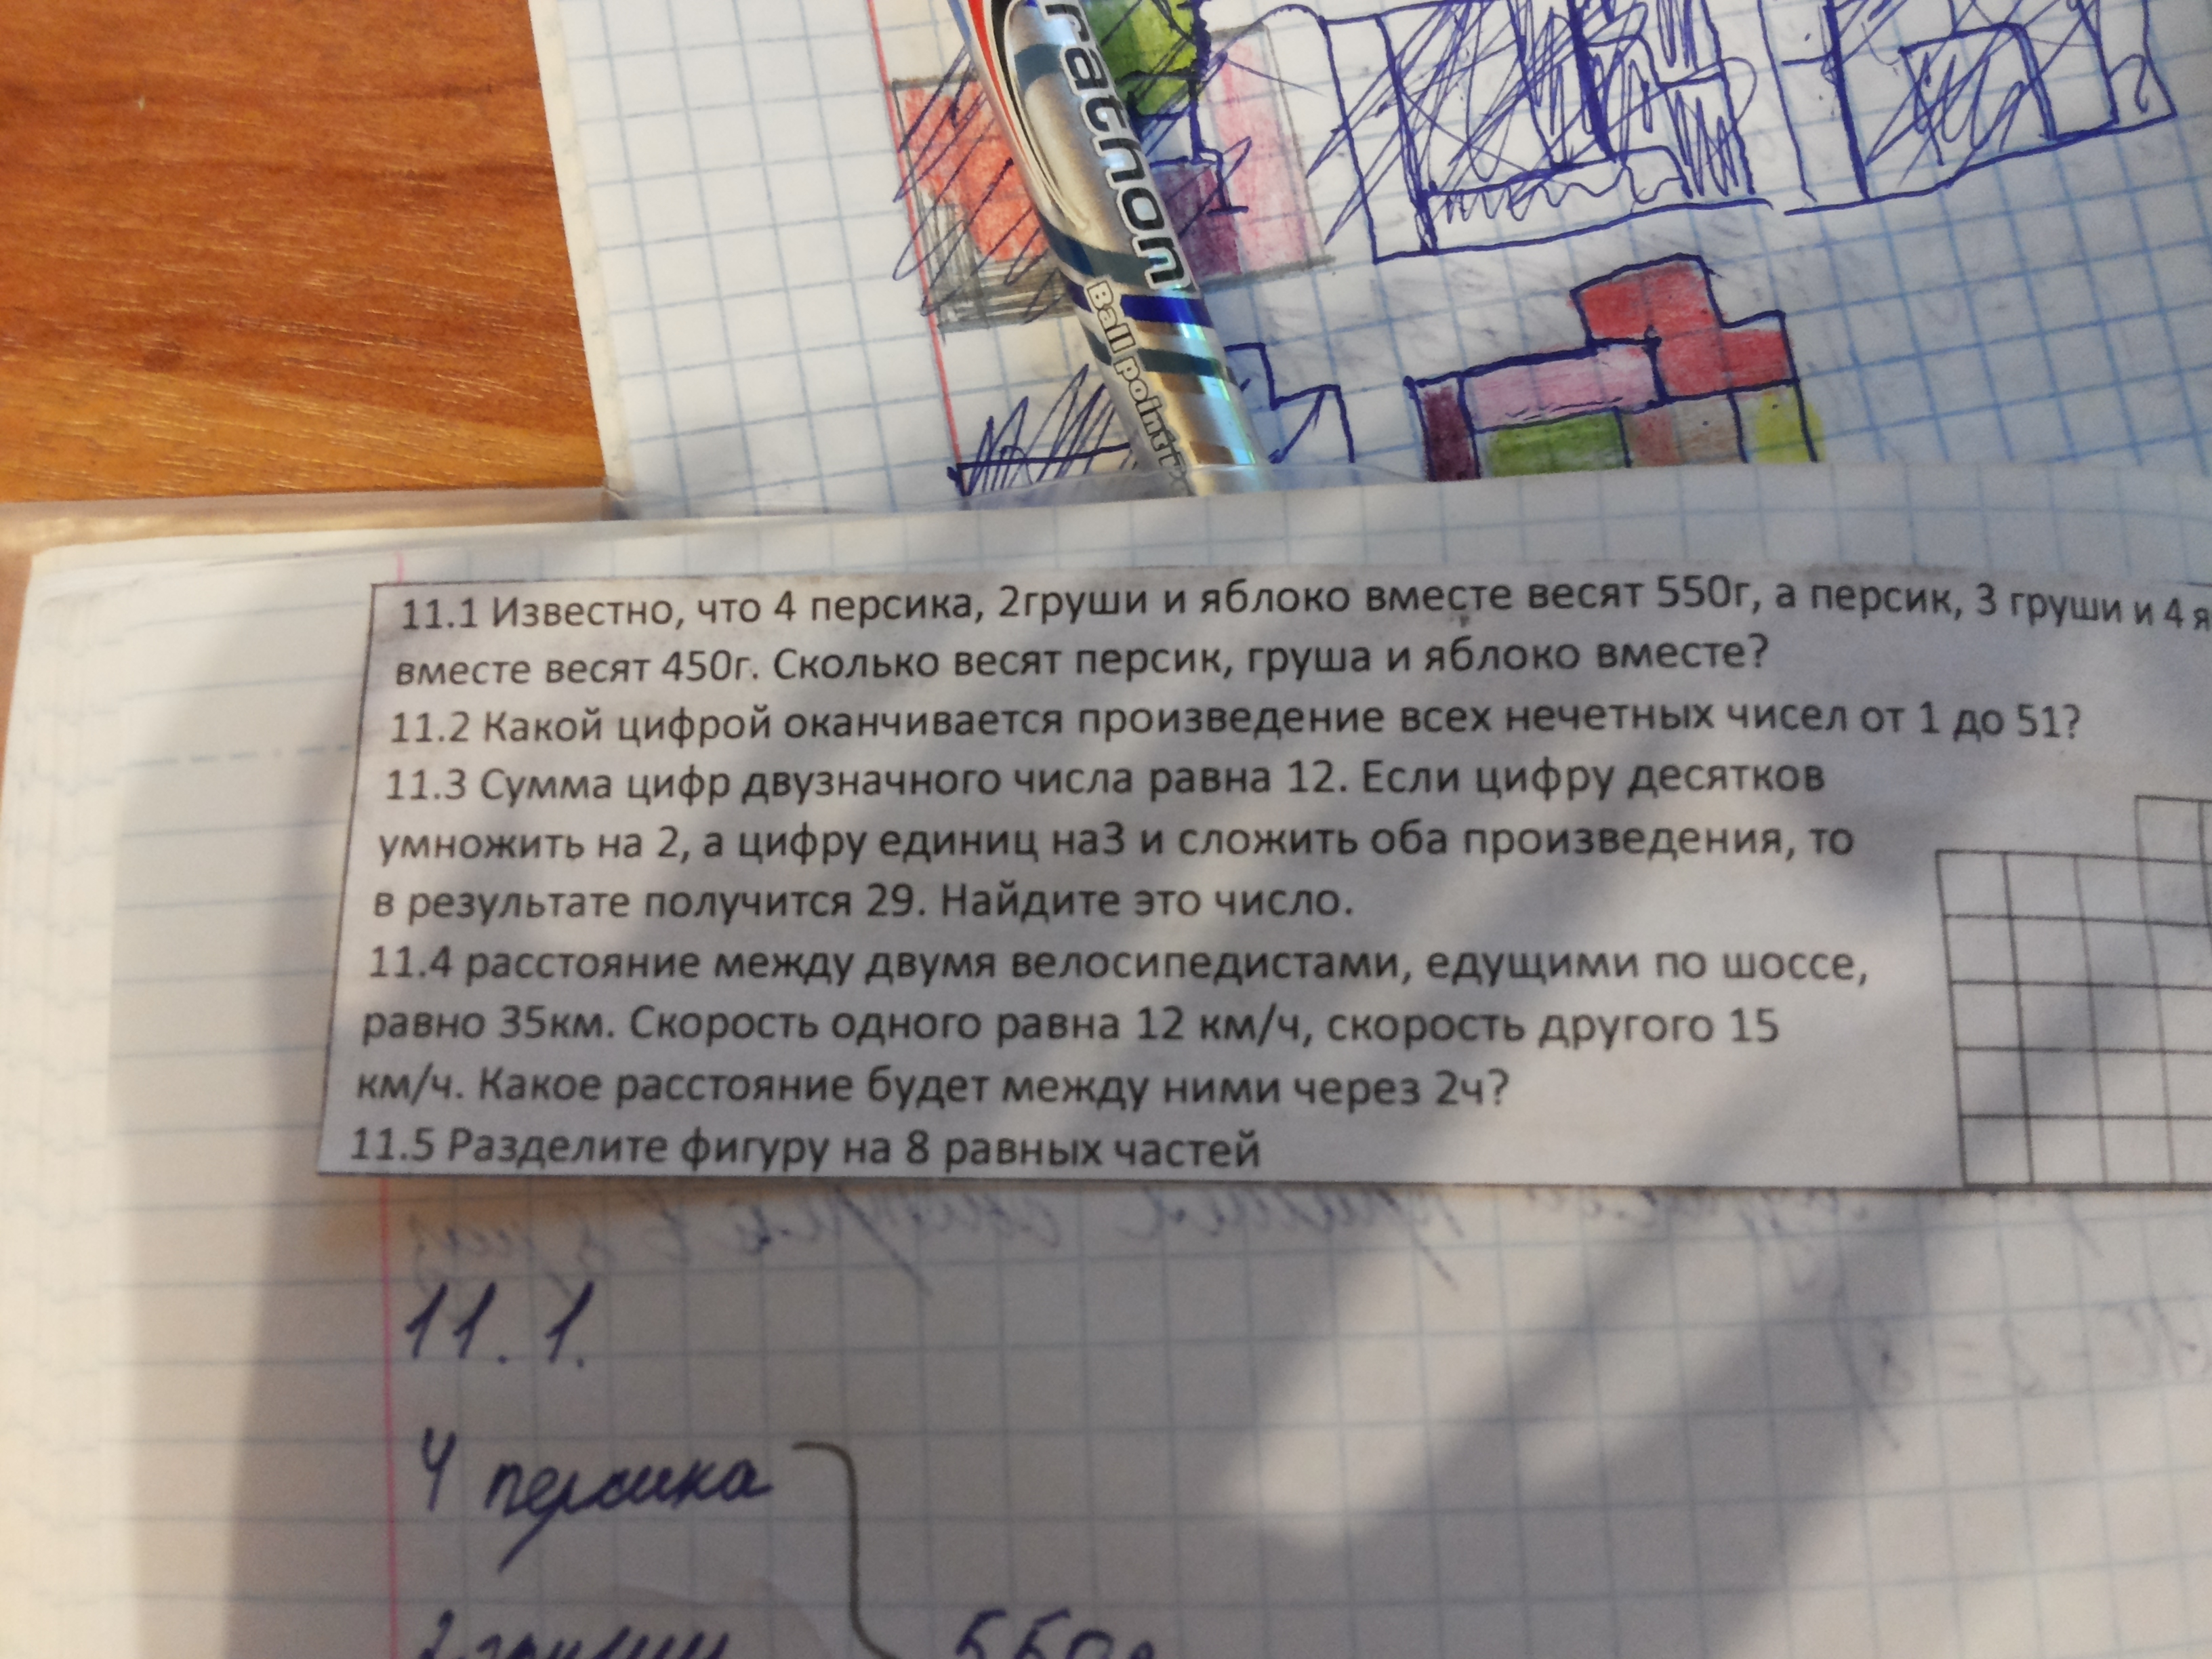 rathon
Ball point
11.1 Известно, что 4 персика, 2груши и яблоко вместе весят 550г, а персик, 3 груши и 4 я
вместе весят 450г. Сколько весят персик, груша и яблоко вместе?
11.2 Какой цифрой оканчивается произведение всех нечетных чисел от 1 до 51?
11.3 Сумма цифр двузначного числа равна 12. Если цифру десятков
умножить на 2, а цифру единиц на3 и сложить оба произведения, то
в результате получится 29. Найдите это число.
11.4 расстояние между двумя велосипедистами, едущими по шоссе,
равно 35км. Скорость одного равна 12 км/ч, скорость другого 15
км/ч. Какое расстояние будет между ними через 2ч?
11.5 Разделите фигуру на 8 равных частей
11.1.
4 персика
2 груши 550г